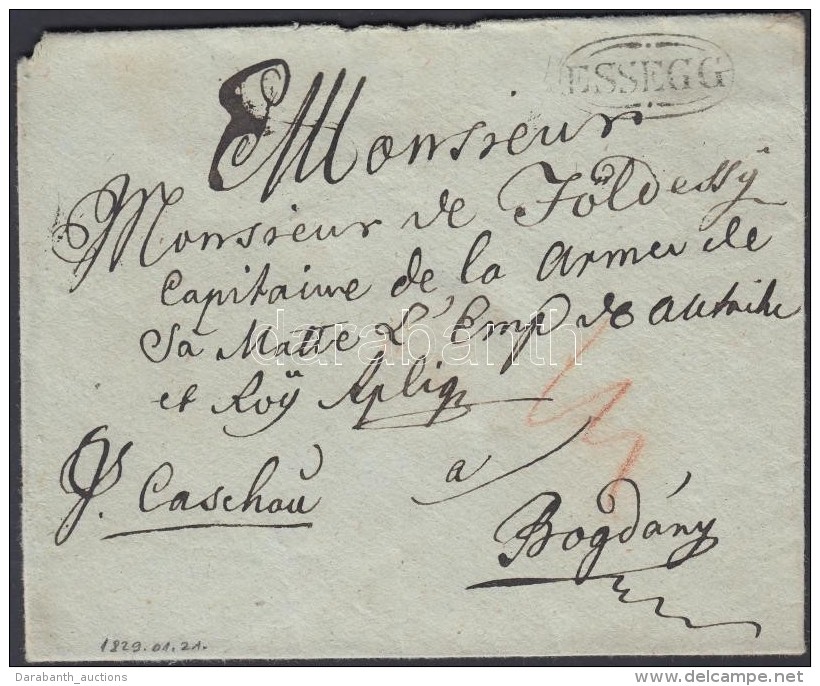 ESSEGG
Monsieur
Monsieur de Földessÿ
Capitaine de la Armee de
Sa Matte L'Emp de Autriche
et Roÿ Apliq
a
P. Caschau
Bogdány
1829.01.21.
darabanth
Darabanth_auctions
www.delcampe.net